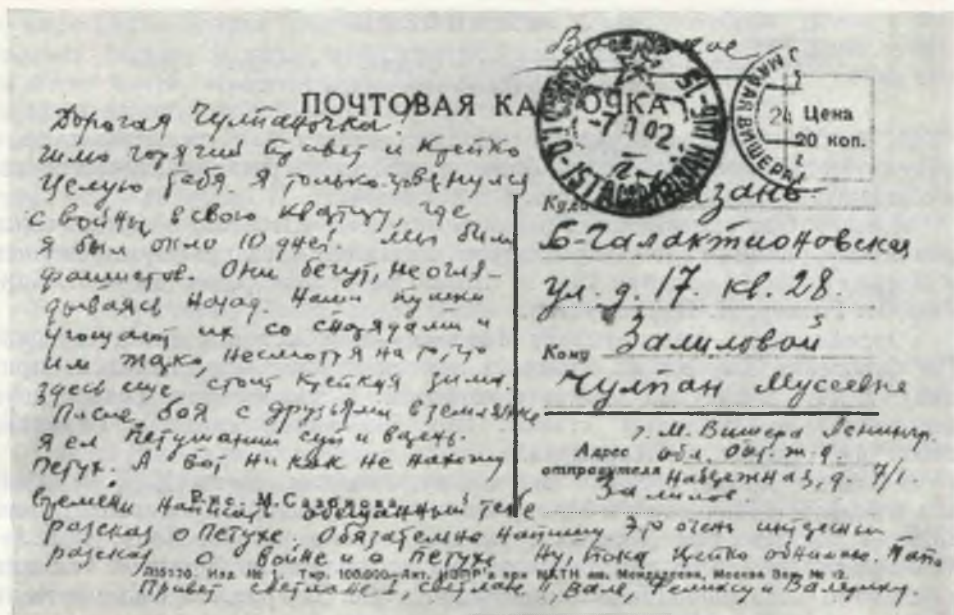 ПОЧТОВАЯ КАРТОЧКА
Цена
20 коп.
Дорогая Чулпаночка!
шлю горячий привет и крепко
целую тебя. Я только вернулся
с войны в свою квартиру, где
я был около 10 дней. Мы били
фашистов. Они бегут, не огля-
дываясь назад. Наши пушки
угощают их со снарядами и
им жарко, несмотря на то, что
здесь еще стоит крепкая зима.
После боя с друзьями в землянке
я ел петушиный суп и
Петух. А вот никак не нахожу
времени написать обещанный тебе
рассказ о Петухе. Обязательно напишу. Это очень интересный
рассказ о войне и о петухе. Ну, пока крепко обнимаю. Папа
Привет Светлане I, Светлане II, Вале, Феликсу и Валерику.
Рис. М. Сазонова
МАЛАЯ ВИШЕРА
24
Куда Казань
Б-Галактионовская
ул. д. 17. кв. 28.
Кому Залиловой
Чулпан Мусеевне
Адрес отправителя
г. М. Вишера Ленингр.
обл. Окт. ж. д.
Набережная, д. 7/1.
Залилов.